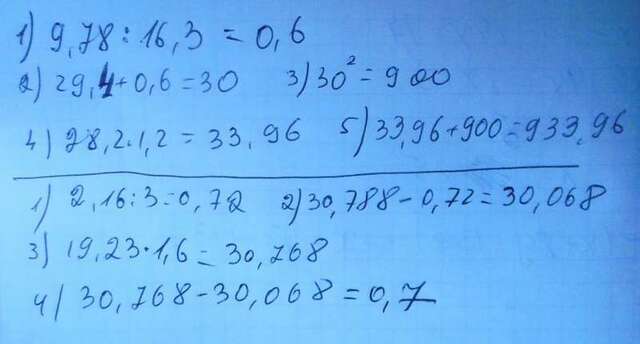 1) 9,78 : 16,3 = 0,6
2) 29,4 + 0,6 = 30 3) 30² = 900
4) 28,2 · 1,2 = 33,96 5) 33,96 + 900 = 933,96
1) 2,16 : 3 = 0,72 2) 30,788 - 0,72 = 30,068
3) 19,23 · 1,6 = 30,768
4) 30,768 - 30,068 = 0,7